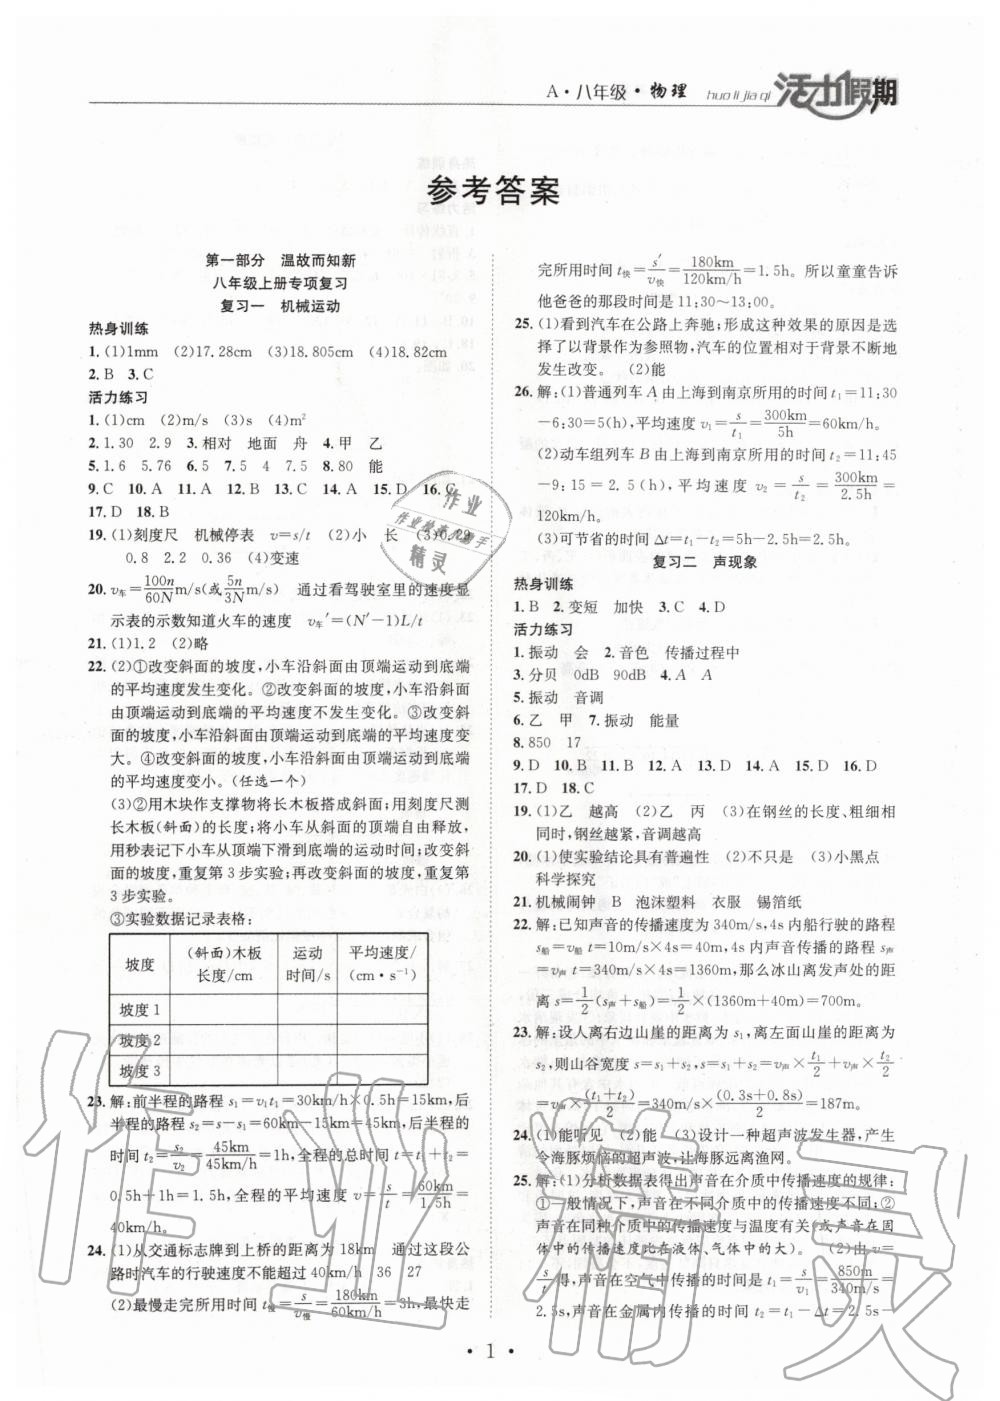 A·八年级·物理 huo li jia qi 活力假期
参考答案
第一部分 温故而知新
八年级上册专项复习
复习一 机械运动
热身训练
1. (1)1mm (2)17.28cm (3)18.805cm (4)18.82cm
2. B 3. C
活力练习
1. (1)cm (2)m/s (3)s (4)m²
2. 1.30 2.9 3. 相对 地面 舟 4. 甲 乙
5. 1.6 5.76 6. 5 7. 5 4 7.5 8. 80 能
9. C 10. A 11. A 12. B 13. C 14. A 15. D 16. C
17. D 18. B
19. (1)刻度尺 机械停表 v=s/t (2)小 长 (3)0.29
0.8 2.2 0.36 (4)变速
20. v车=100n/60N m/s(或5n/3N m/s) 通过看驾驶室里的速度显
示表的示数知道火车的速度 v车′=(N′−1)L/t
21. (1)1.2 (2)略
22. (2)①改变斜面的坡度,小车沿斜面由顶端运动到底端
的平均速度发生变化。②改变斜面的坡度,小车沿斜面
由顶端运动到底端的平均速度不发生变化。③改变斜
面的坡度,小车沿斜面由顶端运动到底端的平均速度变
大。④改变斜面的坡度,小车沿斜面由顶端运动到底端
的平均速度变小。(任选一个)
(3)②用木块作支撑物将长木板搭成斜面;用刻度尺测
长木板(斜面)的长度;将小车从斜面的顶端自由释放,
用秒表记下小车从顶端下滑到底端的运动时间;改变斜
面的坡度,重复第3步实验;再改变斜面的坡度,重复第
3步实验。
③实验数据记录表格:
坡度 (斜面)木板长度/cm 运动时间/s 平均速度/(cm·s⁻¹)
坡度1
坡度2
坡度3
23. 解:前半程的路程 s₁=v₁t₁=30km/h×0.5h=15km,后
半程的路程 s₂=s−s₁=60km−15km=45km,后半程的
时间 t₂=s₂/v₂=45km/45km/h=1h,全程的总时间 t=t₁+t₂=
0.5h+1h=1.5h,全程的平均速度 v=s/t=60km/1.5h=
40km/h。
24. (1)从交通标志牌到上桥的距离为18km 通过这段公
路时汽车的行驶速度不能超过40km/h 36 27
(2)最慢走完所用时间 t慢=s/v慢=180km/60km/h=3h,最快走
完所用时间 t快=s′/v快=180km/120km/h=1.5h。所以童童告诉
他爸爸的那段时间是11:30~13:00。
25. (1)看到汽车在公路上奔驰;形成这种效果的原因是选
择了以背景作为参照物,汽车的位置相对于背景不断地
发生改变。 (2)能
26. 解:(1)普通列车A由上海到南京所用的时间 t₁=11:30
−6:30=5(h),平均速度 v₁=s/t₁=300km/5h=60km/h。
(2)动车组列车B由上海到南京所用的时间 t₂=11:45
−9:15=2.5(h),平均速度 v₂=s/t₂=300km/2.5h=
120km/h。
(3)可节省的时间 Δt=t₁−t₂=5h−2.5h=2.5h。
复习二 声现象
热身训练
1. B 2. 变短 加快 3. C 4. D
活力练习
1. 振动 会 2. 音色 传播过程中
3. 分贝 0dB 90dB 4. A A
5. 振动 音调
6. 乙 甲 7. 振动 能量
8. 850 17
9. D 10. B 11. B 12. A 13. D 14. A 15. D 16. D
17. D 18. C
19. (1)乙 越高 (2)乙 丙 (3)在钢丝的长度、粗细相
同时,钢丝越紧,音调越高
20. (1)使实验结论具有普遍性 (2)不只是 (3)小黑点
科学探究
21. 机械闹钟 B 泡沫塑料 衣服 锡箔纸
22. 解:已知声音的传播速度为340m/s,4s内船行驶的路程
s船=v船t=10m/s×4s=40m,4s内声音传播的路程 s声
=v声t=340m/s×4s=1360m,那么冰山离发声处的距
离 s=1/2(s声+s船)=1/2×(1360m+40m)=700m。
23. 解:设人离右边山崖的距离为s₁,离左面山崖的距离为
s₂,则山谷宽度 s=s₁+s₂,s=s₁+s₂=v声×t₁/2+v声×t₂/2
=v声×(t₁+t₂)/2=340m/s×(0.3s+0.8s)/2=187m。
24. (1)能听见 (2)能 (3)设计一种超声波发生器,产生
令海豚烦恼的超声波,让海豚远离渔网。
25. 解:(1)分析数据表得出声音在介质中传播速度的规律:
①一般情况下,声音在不同介质中的传播速度不同;②
声音在同种介质中的传播速度与温度有关(或声音在固
体中的传播速度比在液体、气体中的大)。 (2)由v=
s/t得,声音在空气中传播的时间 t₁=s/v=850m/340m/s=
2.5s,声音在金属内传播的时间 t₂=t₁−Δt=2.5s−
· 1 ·
作业
作业检查小助手
精灵
作业精灵